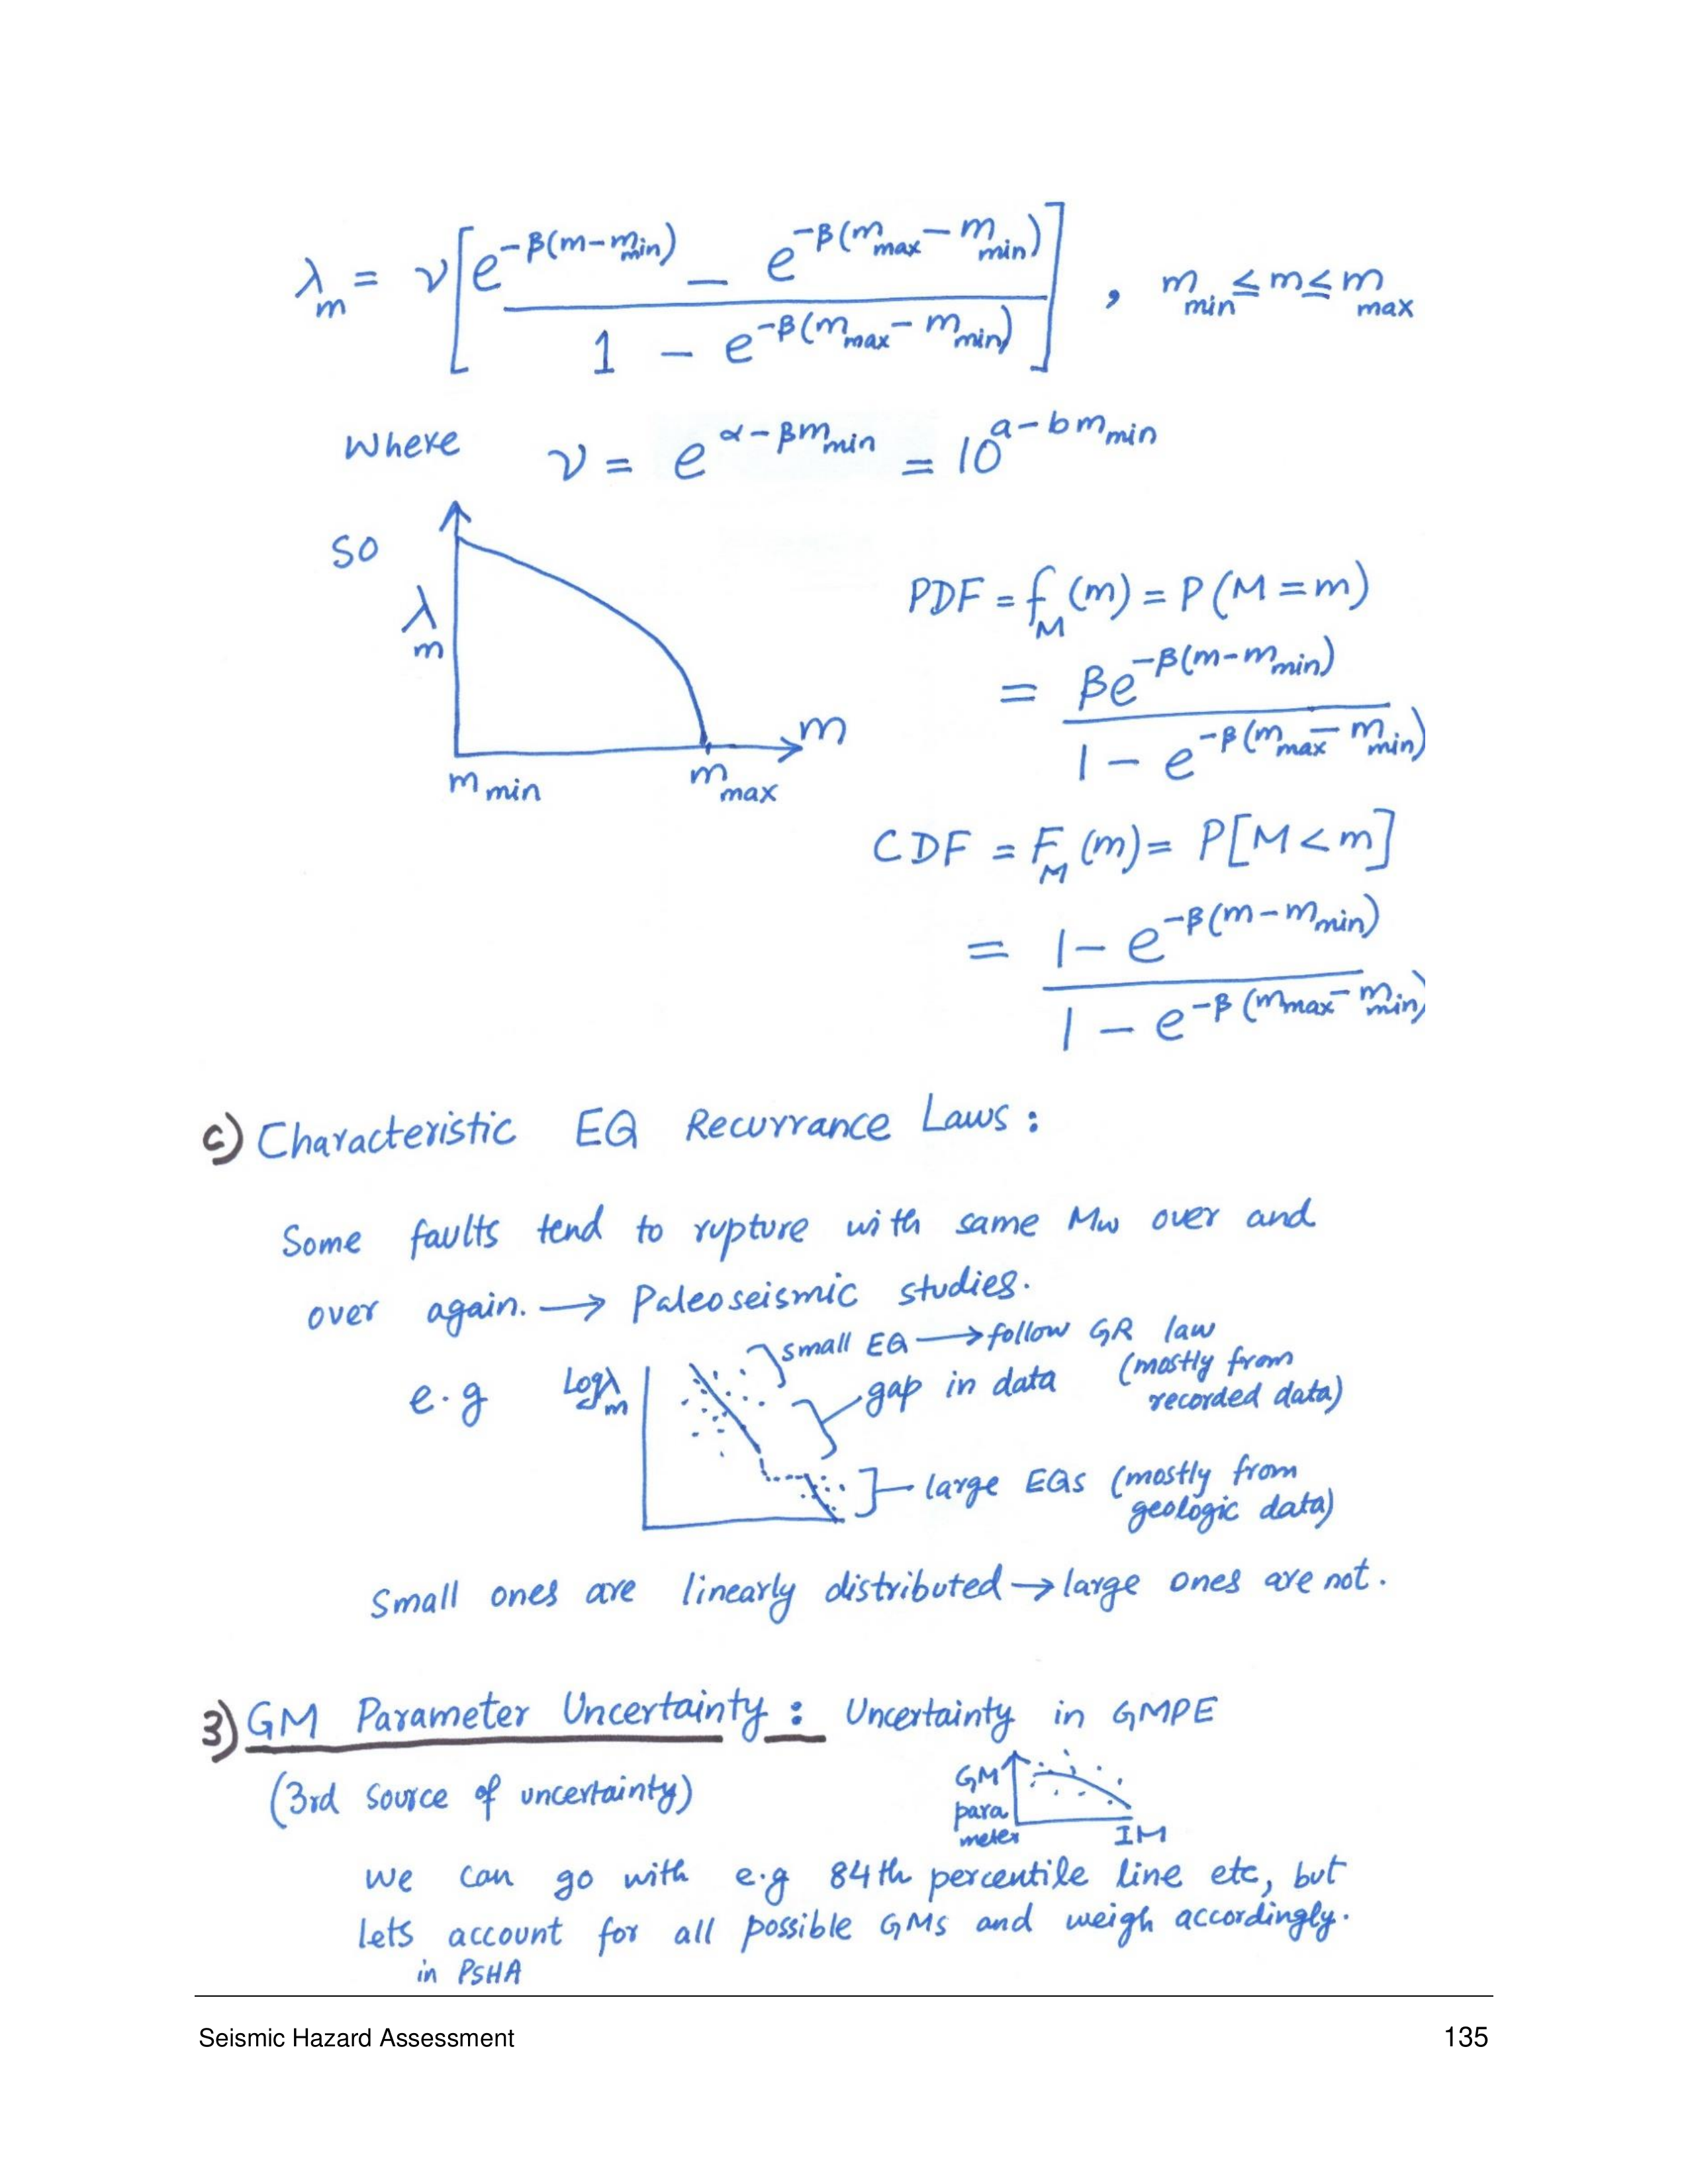 λm = ν[e^-β(m-mmin) - e^-β(mmax-mmin) / 1 - e^-β(mmax-mmin)] , mmin ≤ m ≤ mmax
Where ν = e^α-βmmin = 10^a-bmmin
so
λm
m
mmin
mmax
PDF = fM(m) = P(M=m)
= βe^-β(m-mmin) / 1 - e^-β(mmax-mmin)
CDF = FM(m) = P[M<m]
= 1 - e^-β(m-mmin) / 1 - e^-β(mmax-mmin)
c) Characteristic EQ Recurrance Laws:
Some faults tend to rupture with same Mw over and
over again. → Paleoseismic studies.
e.g
Logλm
small EQ → follow GR law
(mostly from
recorded data)
gap in data
large EQs (mostly from
geologic data)
Small ones are linearly distributed → large ones are not.
3) GM Parameter Uncertainty: Uncertainty in GMPE
(3rd source of uncertainty)
GM
para
meter
IM
we can go with e.g 84th percentile line etc, but
lets account for all possible GMs and weigh accordingly.
in PSHA
Seismic Hazard Assessment 135